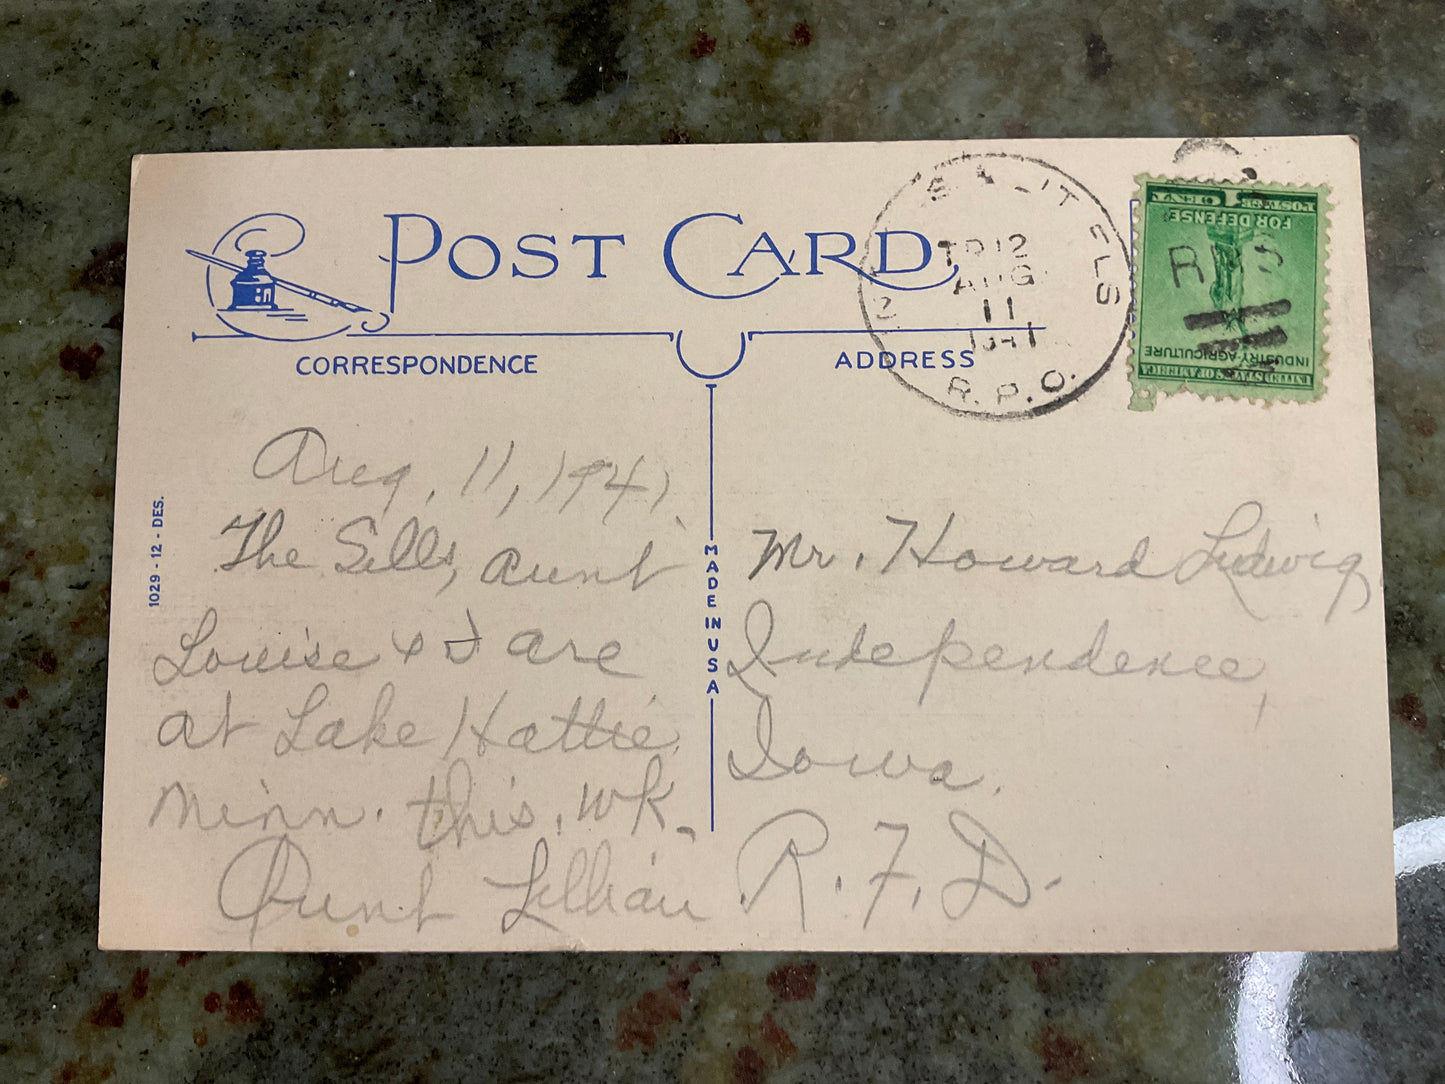 POST CARD
CORRESPONDENCE
ADDRESS
TR 12
AUG
11
1941
R.P.O.
1 CENT
POSTAGE
FOR DEFENSE
INDUSTRY·AGRICULTURE
UNITED STATES OF AMERICA
RPS
1029 - 12 - DES.
MADE IN USA
Aug, 11, 1941
The Sells, Aunt
Louise & I are
at Lake Hattie,
Minn. this wk.
Aunt Lillian
Mr. Howard Ludwig
Independence,
Iowa.
R.F.D.